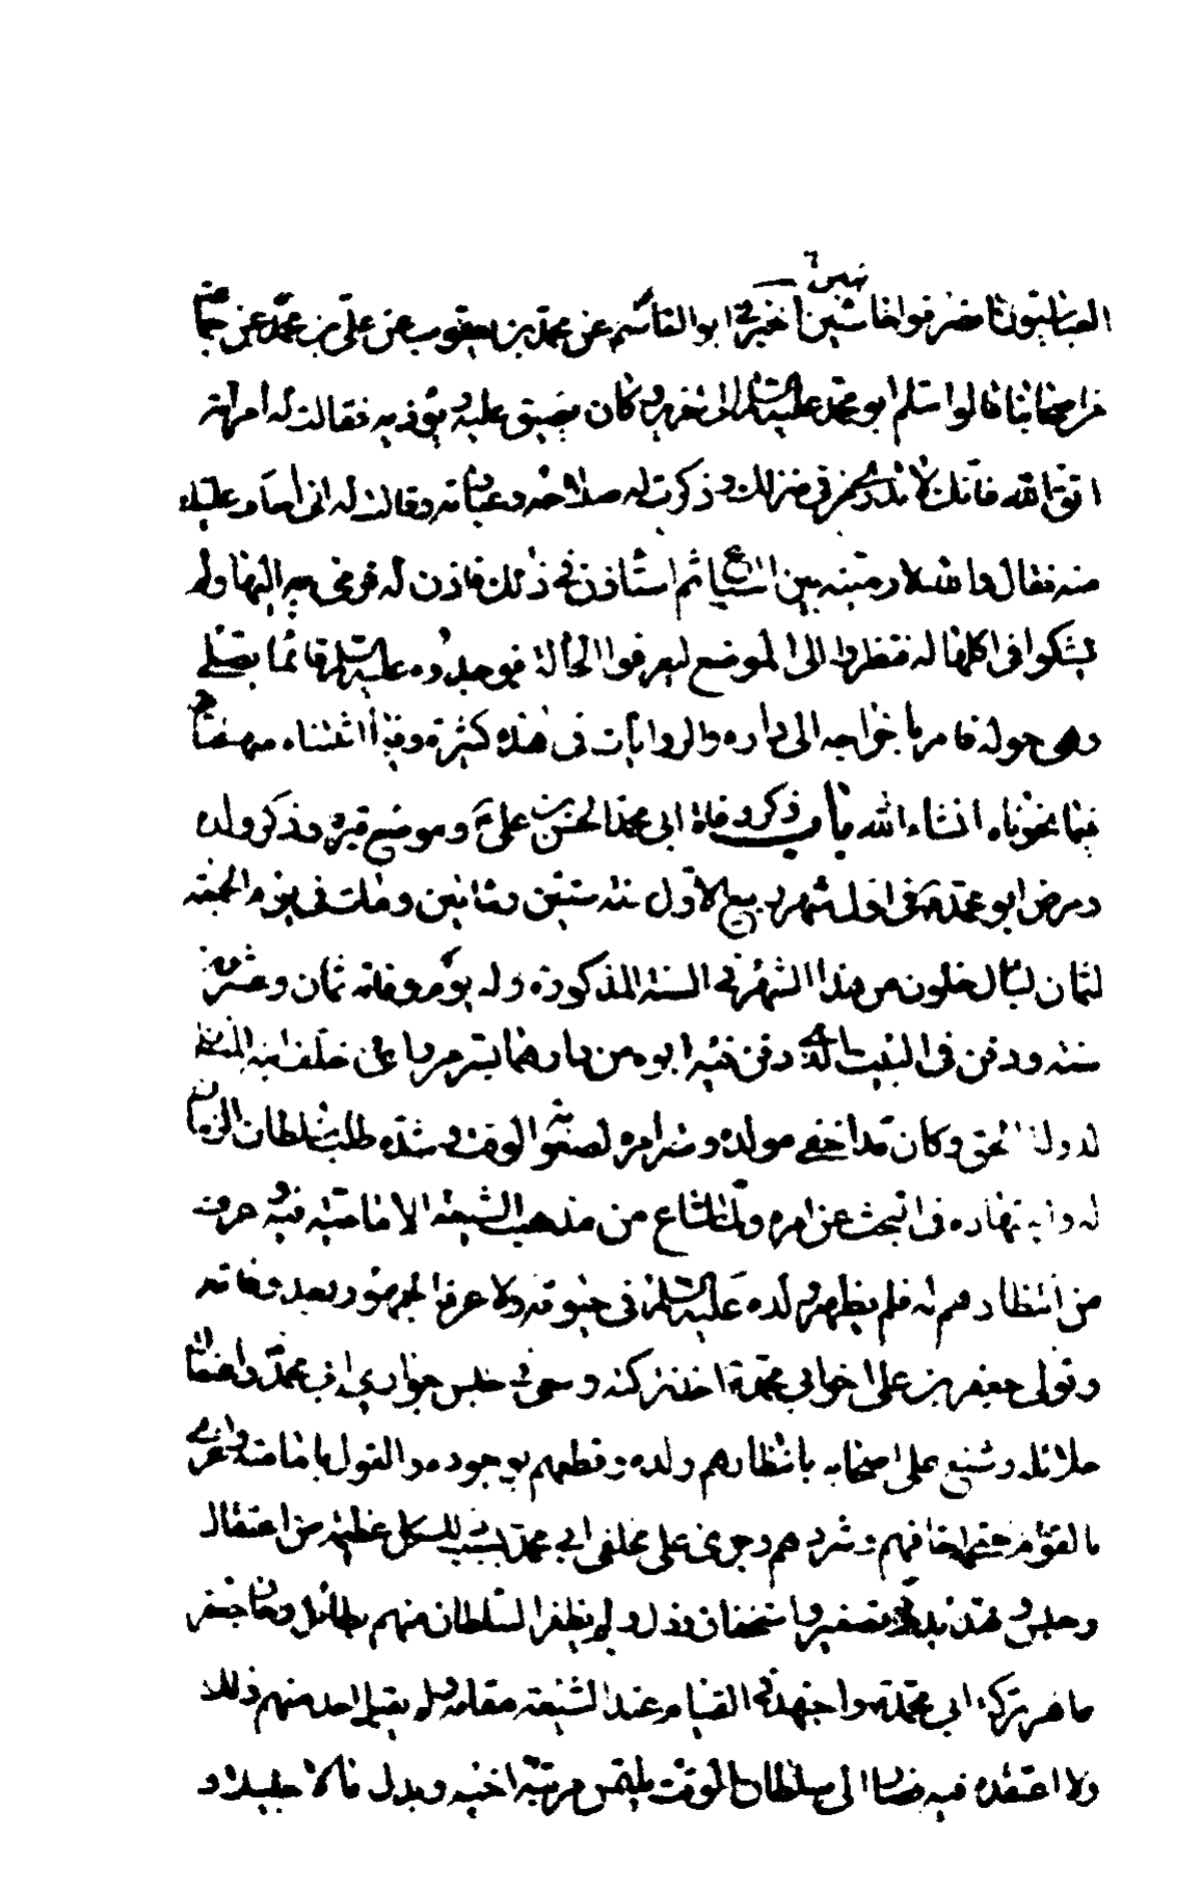 العباسيون فانصرفوا خائبين اخبرني ابو القاسم عن محمد بن يعقوب عن علي بن محمد عن جماعة
من اصحابنا قالوا سلم ابو محمد عليه السلام الى نحرير وكان يضيق عليه ويؤذيه فقالت له امراته
اتق الله فانك لا تدري من في منزلك وذكرت له صلاحه وعبادته وقالت له اني اخاف عليك
منه فقال والله لارمينه بين السباع ثم استاذن في ذلك فاذن له فرمى به اليها ولم
يشكوا في اكلها له فنظروا الى الموضع ليعرفوا الحالة فوجدوه عليه السلم قائما يصلي
وهي حوله فامر باخراجه الى داره والروايات في هذه كثيرة وفيما اثبتناه منها كفاية
فيما نحوناه انشاء الله باب ذكر وفاة ابي محمد الحسن بن علي ع وموضع قبره وذكر ولده
ومرض ابو محمد ع في اول شهر ربيع الاول سنة ستين ومائتين ومات في يوم الجمعة
لثمان ليال خلون من هذا الشهر في السنة المذكورة وله يوم وفاته ثمان وعشرين
سنة ودفن في البيت الذي دفن فيه ابوه من دارهما بسر من راى خلف ابنه المنتظر
لدولة الحق وكان قد اخفى مولده وستر امره لصعوبة الوقت وشدة طلب سلطان الزمان
له واجتهاده في البحث عن امره ولما شاع من مذهب الشيعة الامامية فيه وعرف
من انتظارهم له فلم يظهر ولده عليه السلم في حيوته ولا عرفه الجمهور بعد وفاته
وتولى جعفر بن علي اخو ابي محمد ع اخذ تركته وسعى في حبس جواري ابي محمد واعتقال
حلائله وشنع على اصحابه بانتظارهم ولده وقطعهم بوجوده والقول بامامته واغرى
بالقوم حتى اخافهم وشردهم وجرى على مخلفي ابي محمد بسبب ذلك كل عظيمة من اعتقال
وحبس وتهديد وتصغير واستخفاف وذل ولم يظفر السلطان منهم بطائل وحاز جعفر
ظاهر تركة ابي محمد ع واجتهد في القيام عند الشيعة مقامه ولم يقبل احد منهم ذلك
ولا اعتقده فيه فصار الى سلطان الوقت يلتمس مرتبة اخيه وبذل مالا جليلا و